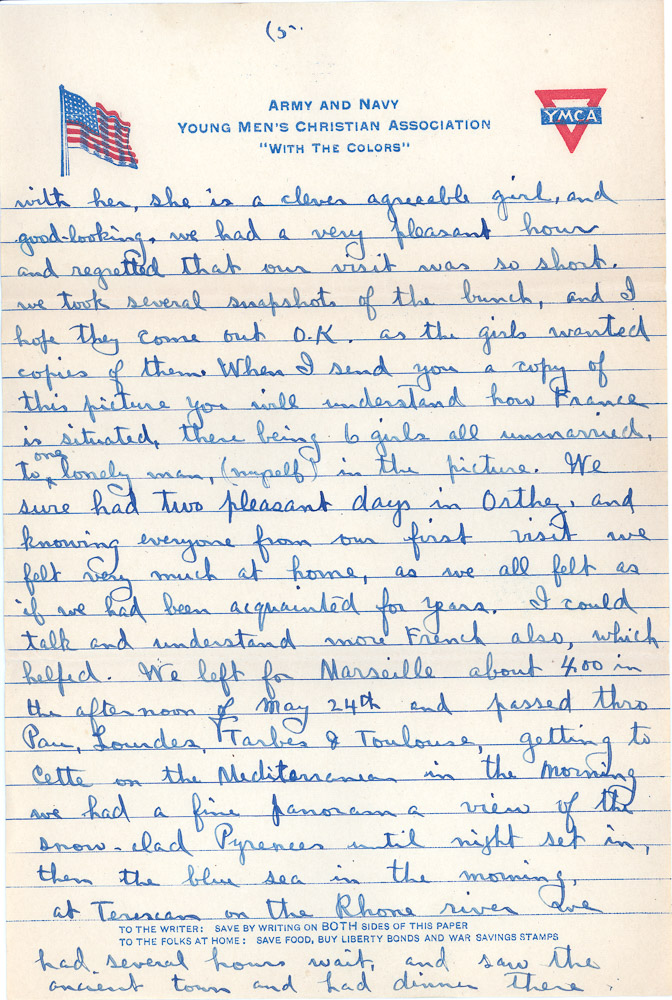 (5-
ARMY AND NAVY
YOUNG MEN'S CHRISTIAN ASSOCIATION
"WITH THE COLORS"
YMCA
with her, she is a clever agreeable girl, and
good-looking, we had a very pleasant hour
and regretted that our visit was so short.
we took several snapshots of the bunch, and I
hope they come out O.K. as the girls wanted
copies of them. When I send you a copy of
this picture you will understand how France
is situated, there being 6 girls all unmarried,
to one lonely man, (myself) in the picture. We
sure had two pleasant days in Orthez, and
knowing everyone from our first visit we
felt very much at home, as we all felt as
if we had been acquainted for years. I could
talk and understand more French also, which
helped. We left for Marseille about 4.00 in
the afternoon of May 24th and passed thro
Pau, Lourdes, Tarbes & Toulouse, getting to
Cette on the Mediterranean in the morning
we had a fine panorama view of the
snow-clad Pyrenees until night set in,
then the blue sea in the morning,
at Terescan on the Rhone river we
TO THE WRITER: SAVE BY WRITING ON BOTH SIDES OF THIS PAPER
TO THE FOLKS AT HOME: SAVE FOOD, BUY LIBERTY BONDS AND WAR SAVINGS STAMPS
had several hours wait, and saw the
ancient town and had dinner there.